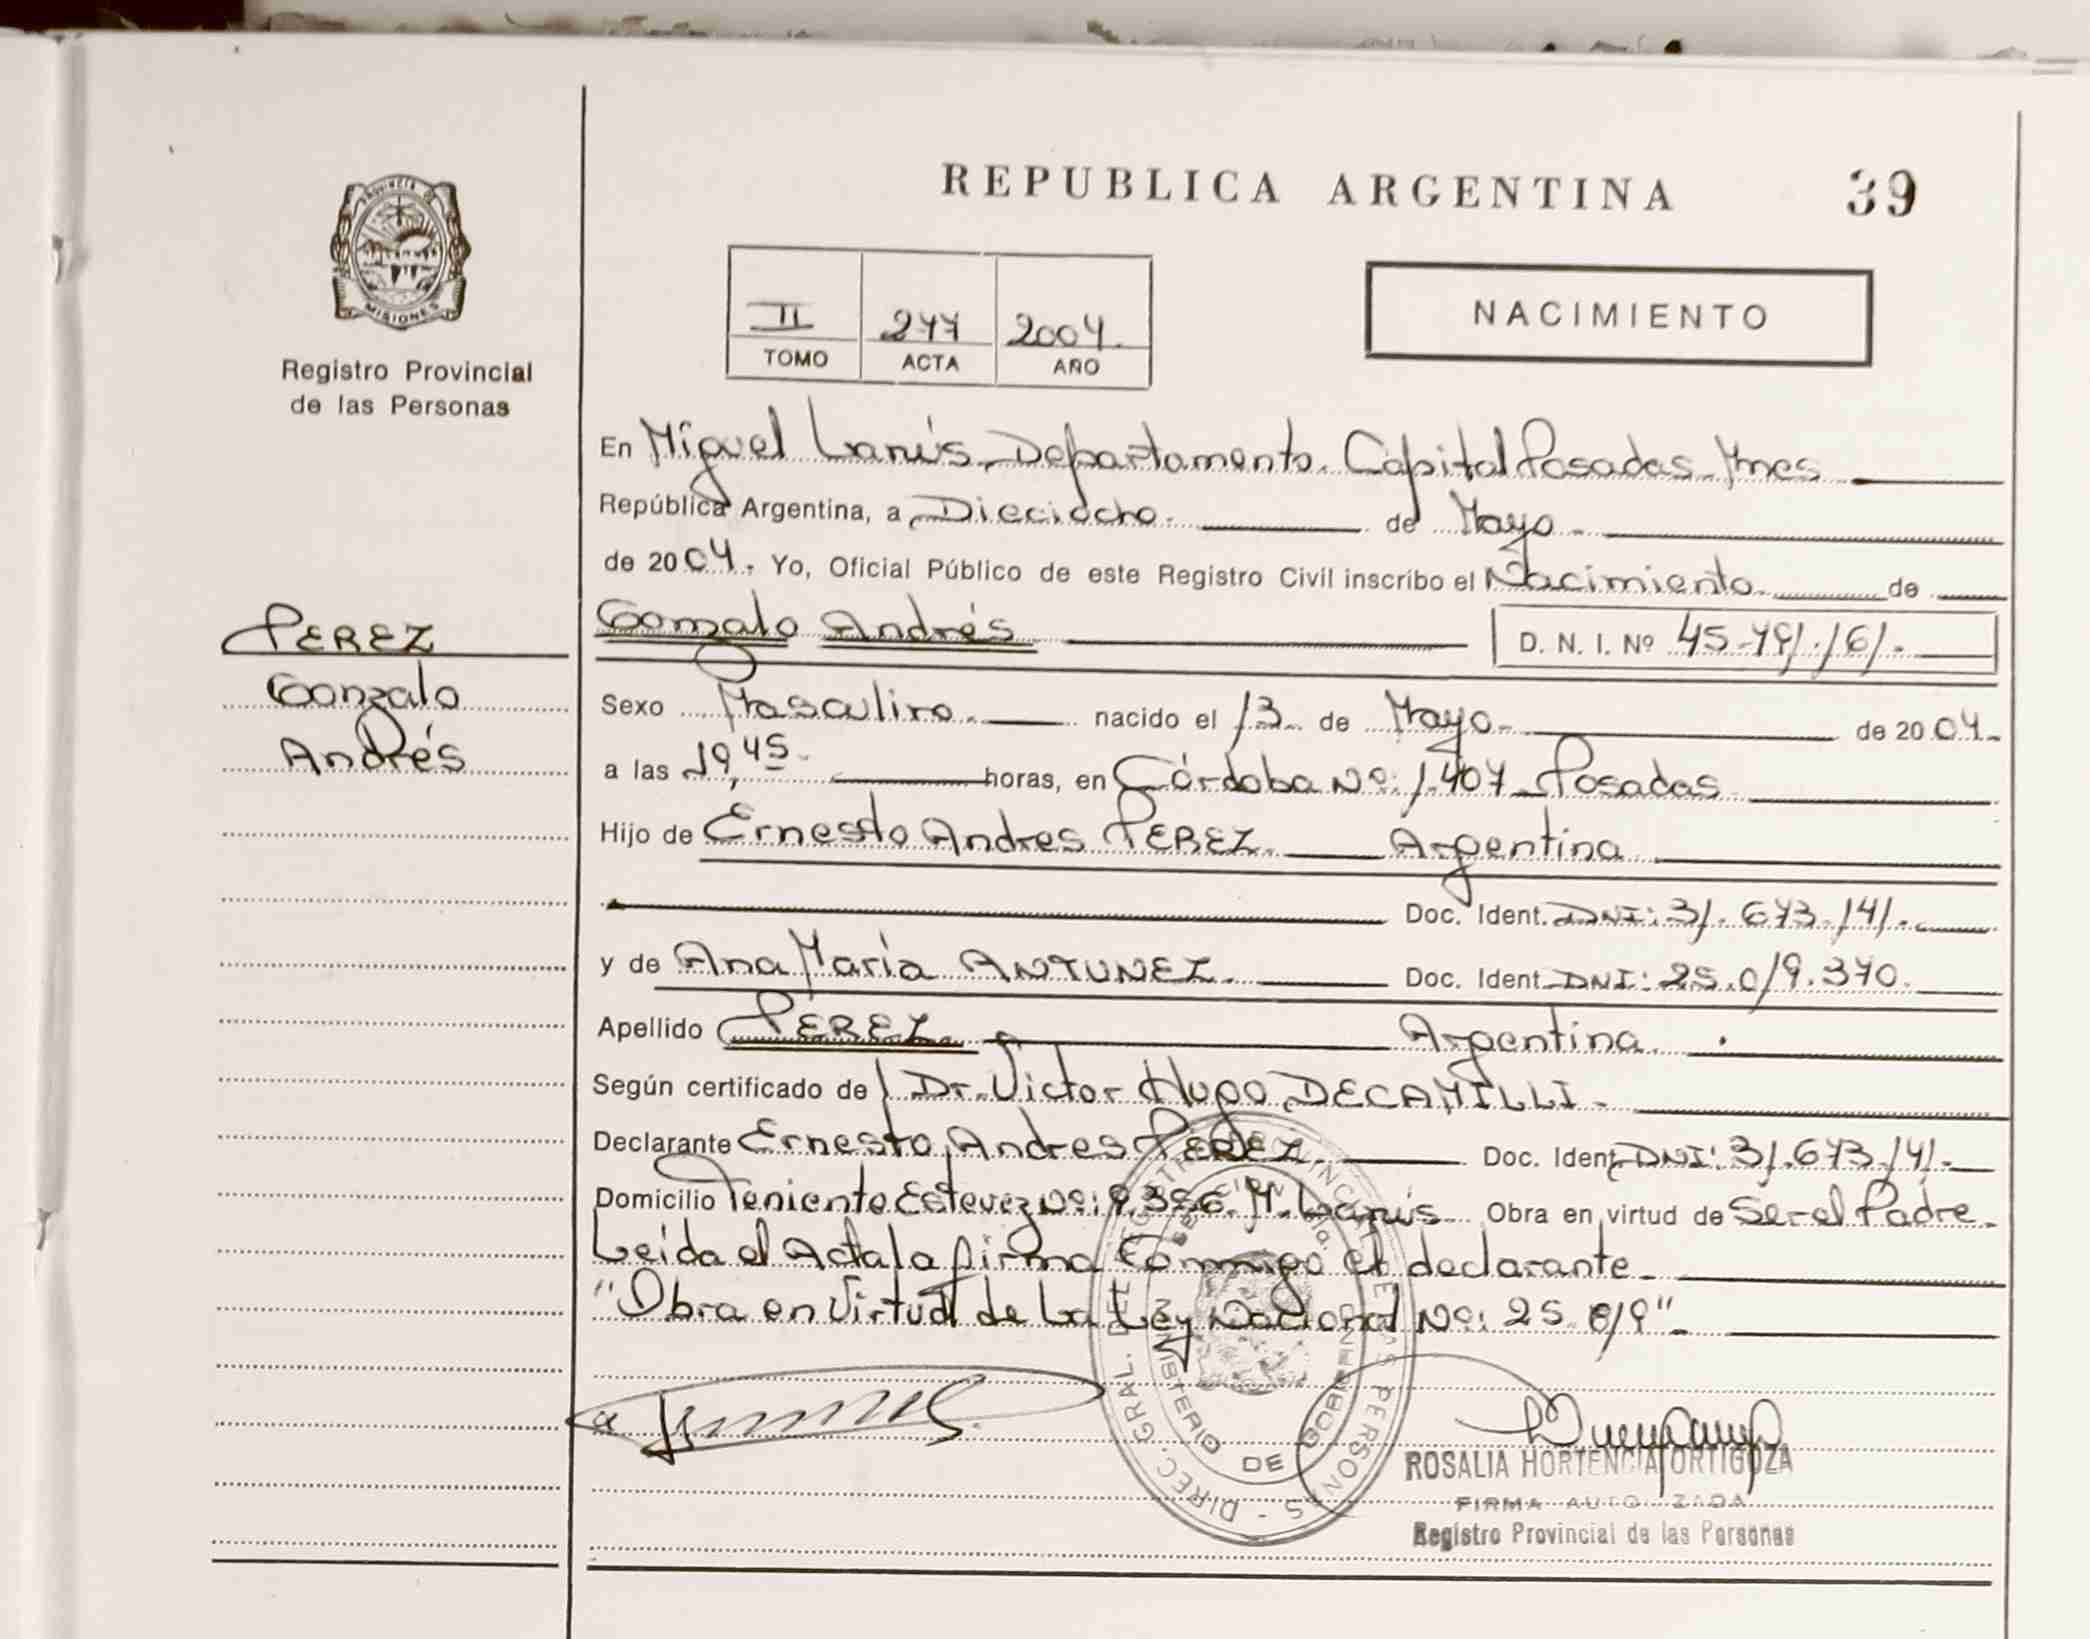 REPUBLICA ARGENTINA
39
PROVINCIA DE
MISIONES
Registro Provincial
de las Personas
II 277 2004.
TOMO ACTA AÑO
NACIMIENTO
En Miguel Lanús - Departamento. Capital Posadas - Mnes
República Argentina, a Dieciocho. de Mayo -
de 2004. Yo, Oficial Público de este Registro Civil inscribo el Nacimiento de
Gonzalo Andrés
D. N. I. Nº 45.791.161.-
PEREZ
Gonzalo
Andrés
Sexo Masculino. nacido el 13 de Mayo - de 2004.
a las 19,45 - horas, en Córdoba Nº: 1.407 - Posadas
Hijo de Ernesto Andres PEREZ. Argentina
Doc. Ident. DNI: 31.673.141.-
y de Ana María ANTUNEZ. Doc. Ident. DNI: 25.019.370.
Apellido PEREZ Argentina.
Según certificado de Dr. Victor Hugo DECAMILLI -
Declarante Ernesto Andres PEREZ. Doc. Ident. DNI: 31.673.141.-
Domicilio Teniente Estevez Nº: 9.356. M. Lanús Obra en virtud de Ser el Padre -
Leida el Acta la firma Conmigo el declarante -
"Obra en Virtud de La Ley Nacional Nº: 25.819" -
DIREC. GRAL. DEL REGISTRO PROVINCIAL DE LAS PERSONAS -
MINISTERIO DE GOBIERNO
ROSALIA HORTENCIA ORTIGOZA
FIRMA AUTORIZADA
Registro Provincial de las Personas